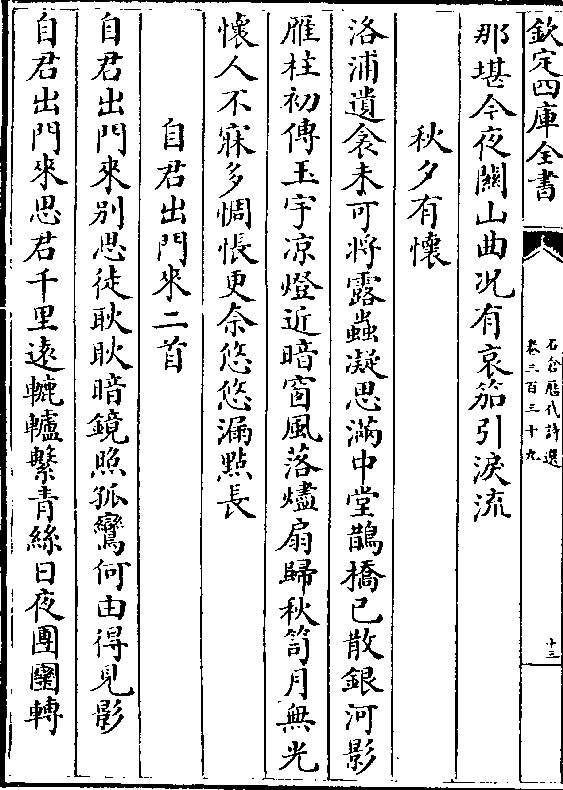 欽定四庫全書
石倉歷代詩選
卷三百三十九
十三
那堪今夜關山曲况有哀笳引淚流
秋夕有懷
洛浦遺衾未可將露蟲凝思滿中堂鵲橋已散銀河影
雁柱初傳玉宇凉燈近暗窗風落燼扇歸秋笥月無光
懷人不寐多惆悵更奈悠悠漏點長
自君出門來二首
自君出門來别思徒耿耿暗鏡照孤鸞何由得見影
自君出門來思君千里遠轆轤繫青絲日夜團圞轉